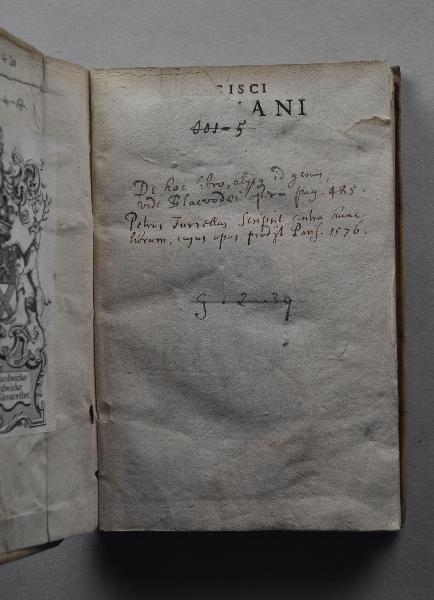 CISCI
ANI
001-5
De hoc libro, alijsq id genus,
vide Blacvodæi opera pag. 485.
Petrus Turrellus scripsit contra hunc
librum, cujus opus prodijt Paris. 1576.
G. 2. 39
ardwicke
dwicke
Gloucester.